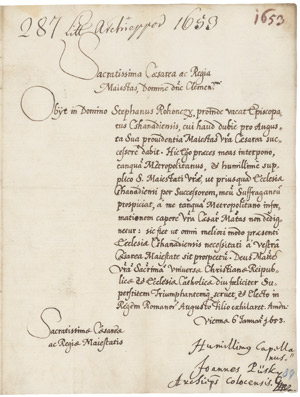 287 Litt Archiepp 1653
1653
Sacratissima Cæsarea ac Regia
Maiestas, Domine Clemen
Obijt in Domino Stephanus Rohonczy, proinde vacat Episcopa-
tus Chanadiensis, cui haud dubie pro Augus-
ta Sua prouidentia Maiestas Vra Cæsarea suc-
cessorem dabit. Hic Ego præces meas interpono,
tanquã Metropolitanus, et humillime sup-
plico S. Maiestati Vræ, ut priusquã Ecclesiæ
Chanadiensi per Successorem, meũ Suffraganeũ
prospiciat, a me tanquã Metropolitano infor-
mationem capere Vra Cæsar Maiẽtas non dedig-
netur: sic fiet ut omni meliori modo præsenti
Ecclesiæ Chanadiensis necessitati a Vestra
Cæsarea Maiestate sit prospectũ. Deus Maiẽs
Vrã Sacrãmã Vniuersæ Christianæ Reipub-
licæ et Ecclesiæ Catholicæ diu feliciter Su-
perstitem Triumphantemq seruet, et Electo in
Regem Romanorum Augusto Filio exhilaret.
Viennæ 6 Januarij 1653.
Sacratissimæ Cæsareæ
ac Regiæ Maiestatis
Humillimus Capella
nus
Joannes Püsky
Archiepus Colocensis